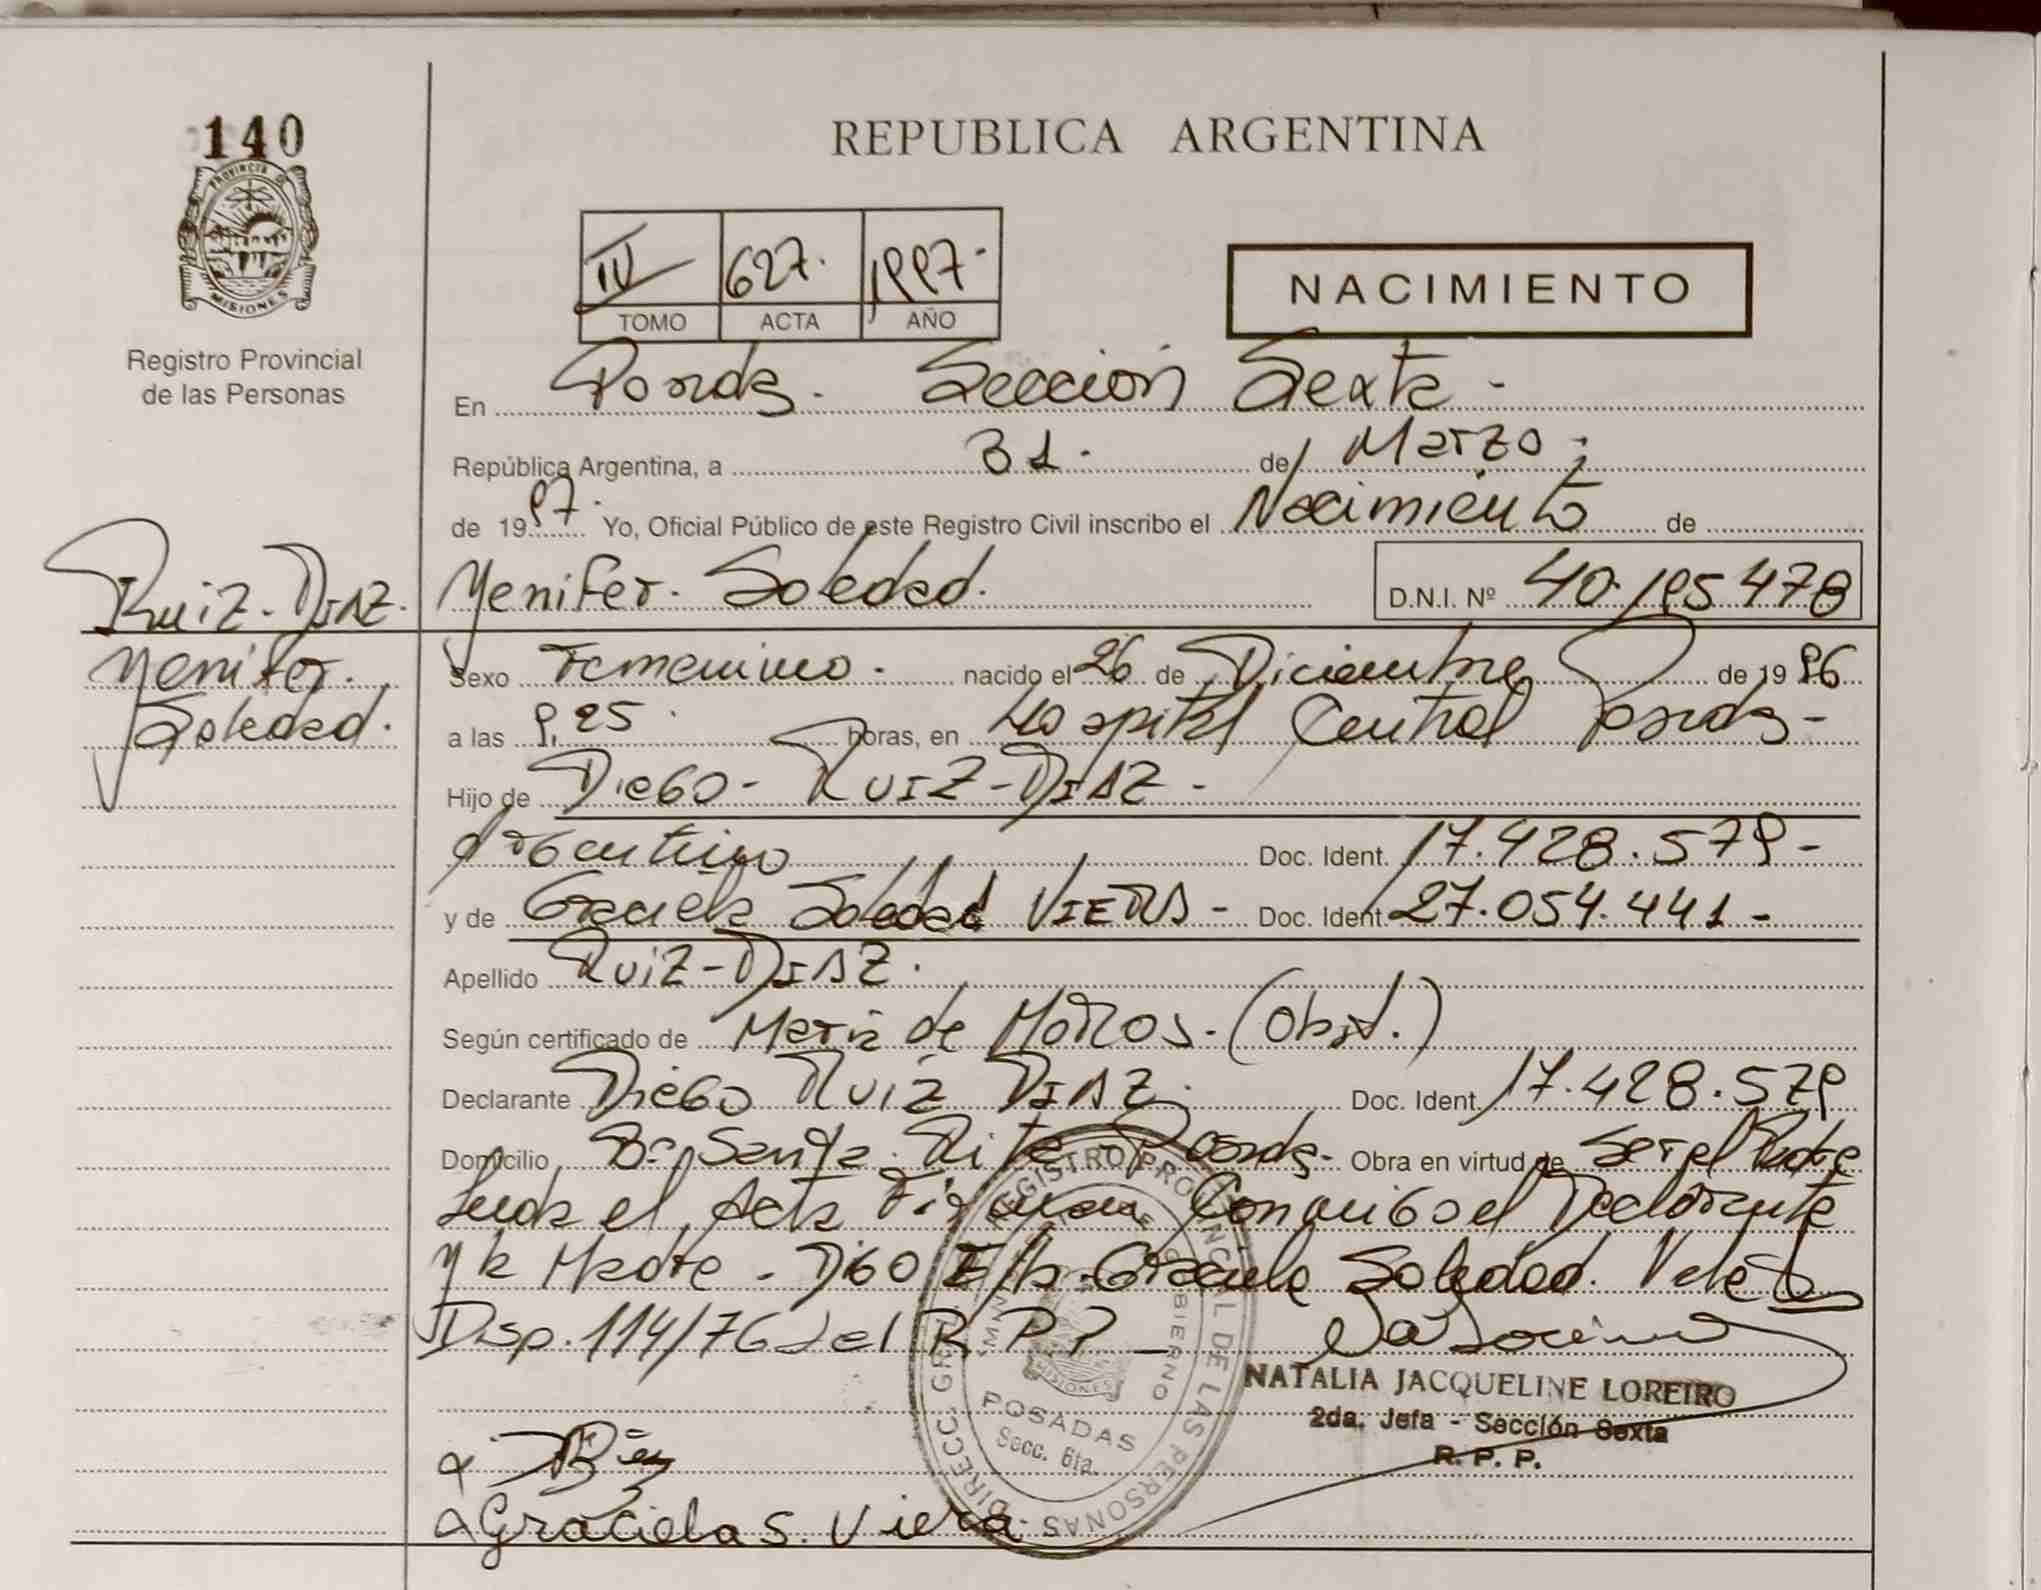 140
PROVINCIA DE
MISIONES
Registro Provincial
de las Personas
REPUBLICA ARGENTINA
IV 627. 1997.
TOMO ACTA AÑO
NACIMIENTO
En Posadas. Sección Sexta -
República Argentina, a 31. de Marzo
de 1997. Yo, Oficial Público de este Registro Civil inscribo el Nacimiento de
Yenifer. Soledad. D.N.I. Nº 40.195478
Ruiz-DIAZ.
Yenifer.
Soledad.
Sexo Femenino. nacido el 26 de Diciembre de 1996
a las 9,25 horas, en Hospital Central Posadas-
Hijo de Diego- RUIZ-DIAZ-
Argentino Doc. Ident. 17.428.579-
y de Graciela Soledad VIERA- Doc. Ident. 27.054.441-
Apellido RUIZ-DIAZ.
Según certificado de María de Moros. (Obst.)
Declarante Diego RUIZ DIAZ. Doc. Ident. 17.428.579
Domicilio Bº Santa Rita Posadas- Obra en virtud de Ser el Padre
Leida el Acta Firman Conmigo el Declarante
y la Madre - Digo E/la. Graciela Soledad. Vale
Disp. 114/76 del R P P
NATALIA JACQUELINE LOREIRO
2da. Jefa - Sección Sexta
R. P. P.
DIRECC. GRAL. REGISTRO PROVINCIAL DE LAS PERSONAS
GOBIERNO
MISIONES
POSADAS
Secc. 6ta.
Graciela S. Viera